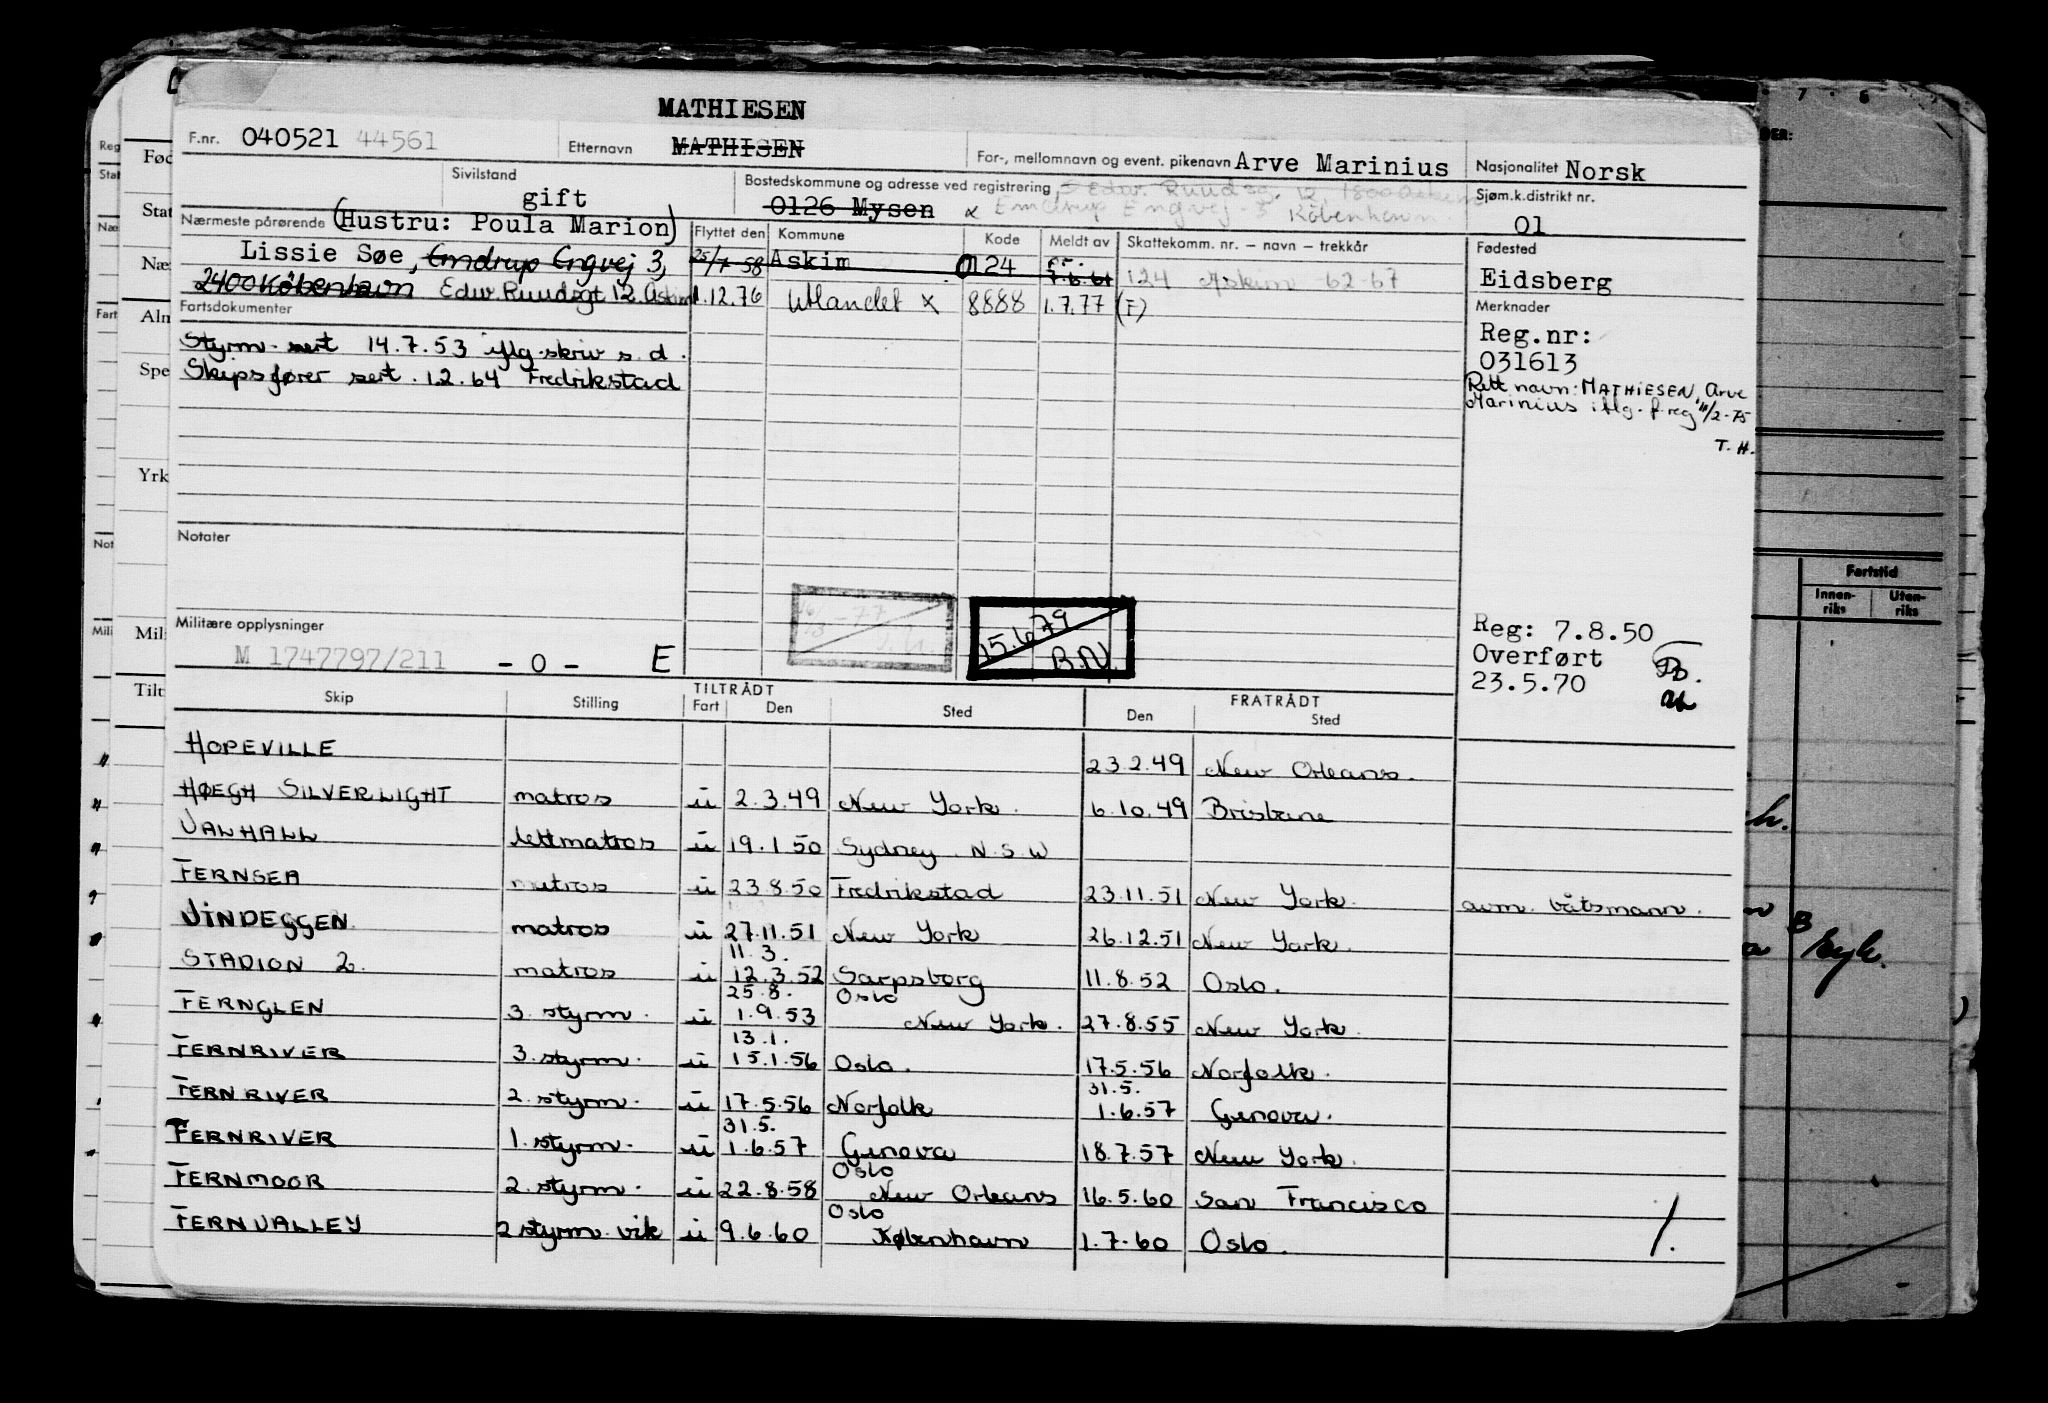 MATHIESEN
F.nr. 040521 44561 Etternavn MATHISEN For-, mellomnavn og event. pikenavn Arve Marinius Nasjonalitet Norsk
Sivilstand gift Bostedskommune og adresse ved registrering Edw. Ruudsg. 12, 1800 Askim Sjøm.k.distrikt nr. 01
0126 Mysen x Emdrup Engvej 3 København
Nærmeste pårørende (Hustru: Poula Marion) Flyttet den Kommune Kode Meldt av Skattekomm. nr. – navn – trekkår Fødested
Lissie Søe, Emdrup Engvej 3, 25/7-58 Askim 0124 7.6.61 124 Askim -62-67 Eidsberg
2400 København Edw. Ruudsgt 12. Askim 1.12.76 Utlandet x 8888 1.7.77 (F)
Fartsdokumenter Merknader
Styrm. sert 14.7.53 iflg. skriv s. d. Reg.nr:
031613
Skipsfører sert. 1.2.64 Fredrikstad
Rett navn: MATHIESEN, Arve
Marinius iflg. f.reg 11/2-75
T. H.
Notater
-77
15.6.79
B.N.
Militære opplysninger
M 1747797/211 - o - E
Reg: 7.8.50
Overført
23.5.70
TILTRÅDT FRATRÅDT
Skip Stilling Fart Den Sted Den Sted
HOPEVILLE 23.2.49 New Orleans.
HØEGH SILVERLIGHT matros u 2.3.49 New York. 6.10.49 Brisbane
VALHALL lettmatros u 19.1.50 Sydney N.S.W
FERNSEA matros u 23.8.50 Fredrikstad 23.11.51 New York. avm. båtsmann.
VINDEGGEN matros u 27.11.51 New York 26.12.51 New York.
11.3.
STADION 2. matros u 12.3.52 Sarpsborg 11.8.52 Oslo.
25.8. Oslo
FERNGLEN 3. styrm. u 1.9.53 New York. 27.8.55 New York.
13.1.
FERNRIVER 3. styrm. u 15.1.56 Oslo. 17.5.56 Norfolk.
31.5.
FERNRIVER 2. styrm. u 17.5.56 Norfolk 1.6.57 Genova.
31.5.
FERNRIVER 1. styrm. u 1.6.57 Genova 18.7.57 New York.
Oslo
FERNMOOR 2. styrm. u 22.8.58 New Orleans 16.5.60 San Francisco
Oslo
FERNVALLEY 2 styrm. vik u 9.6.60 København 1.7.60 Oslo.
Reg
Stat
Næ
Fart
Not
Mili
Fød
Stat
Næ
Alm
Spe
Yrk
Mil
Tilt
DER:
Fartstid
Innen-
riks
Uten-
riks